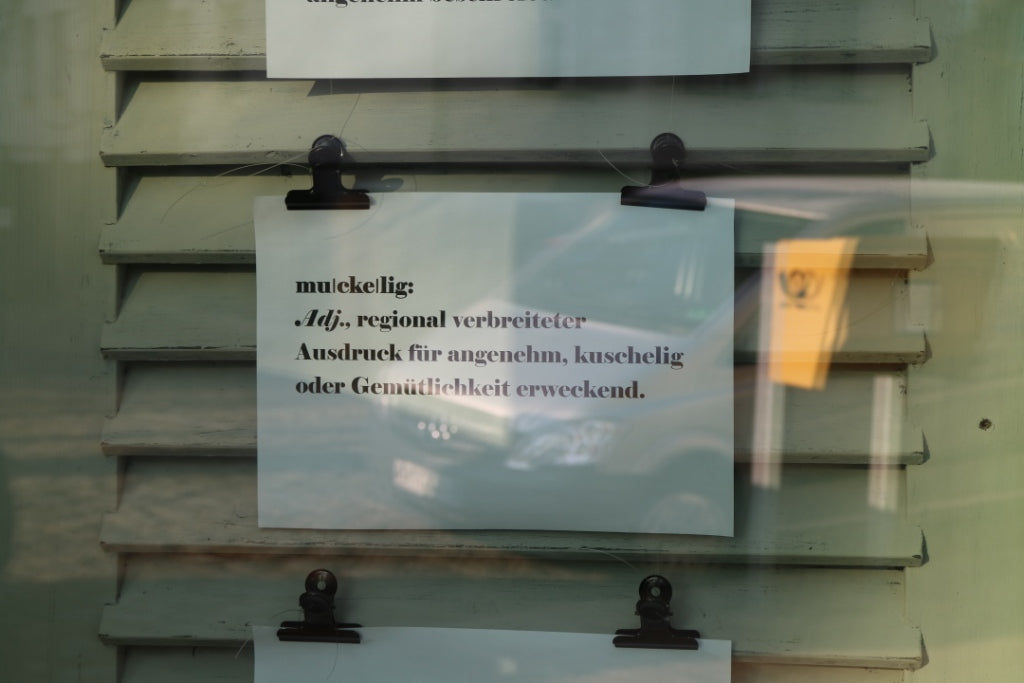 mu|cke|lig:
Adj., regional verbreiteter
Ausdruck für angenehm, kuschelig
oder Gemütlichkeit erweckend.